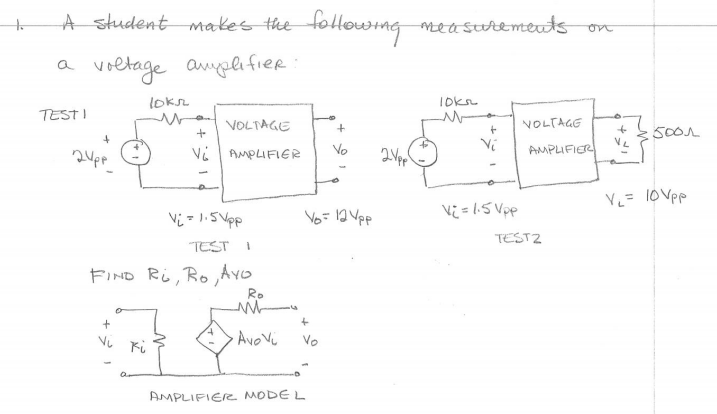 1. A student makes the following measurements on
a voltage amplifier:
TEST 1
10KΩ
2Vpp
+
-
+
Vi
-
VOLTAGE
AMPLIFIER
+
Vo
-
Vi = 1.5Vpp
Vo = 12Vpp
TEST 1
10KΩ
2Vpp
+
-
+
Vi
-
VOLTAGE
AMPLIFIER
+
VL
-
500Ω
Vi = 1.5Vpp
VL = 10Vpp
TEST 2
FIND Ri, Ro, Avo
+
Vi
-
Ri
+
-
AvoVi
Ro
+
Vo
-
AMPLIFIER MODEL